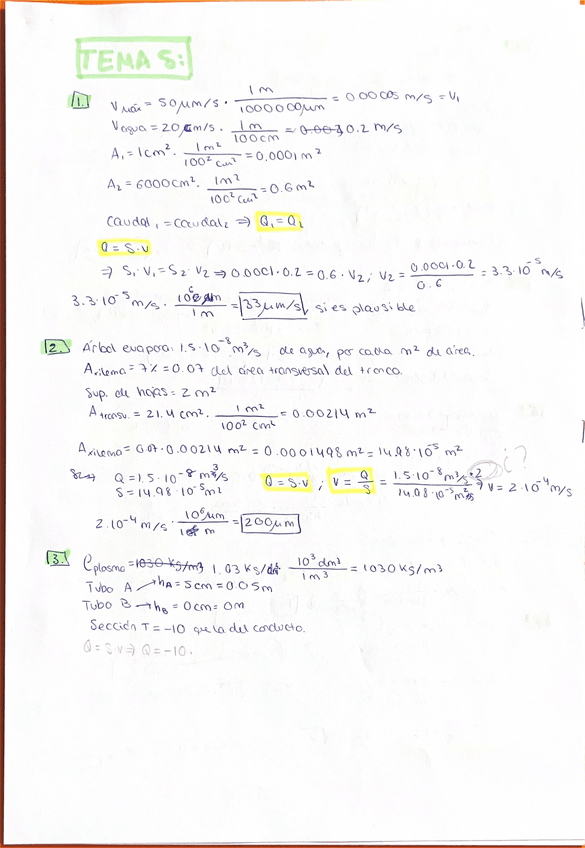 TEMA 5:
1. Vmáx = 50 μm/s · 1m / 1000000μm = 0.00005 m/s = V₁
Vagua = 20 cm/s · 1m / 100cm = 0.003 0.2 m/s
A₁ = 1cm² · 1m² / 100² cm² = 0.0001 m²
A₂ = 6000cm² · 1m² / 100² cm² = 0.6 m²
caudal₁ = caudal₂ ⇒ Q₁ = Q₂
Q = S·v
⇒ S₁·V₁ = S₂·V₂ ⇒ 0.0001·0.2 = 0.6·V₂; V₂ = 0.0001·0.2 / 0.6 = 3.3·10⁻⁵ m/s
3.3·10⁻⁵ m/s · 10⁶ μm / 1m = 33 μm/s, si es plausible
2. Árbol evapora: 1.5·10⁻⁸ m³/s de agua, por cada m² de área.
Axilema = 7% = 0.07 del área transversal del tronco.
Sup. de hojas = 2 m²
A transv. = 21.4 cm² · 1m² / 100² cm² = 0.00214 m²
Axilema = 0.07·0.00214 m² = 0.0001498 m² = 14.98·10⁻⁵ m²
Q = 1.5·10⁻⁸ m³/s Q = S·v ; V = Q / S = 1.5·10⁻⁸ m³/s · 2 / 14.98·10⁻⁵ m² ⇒ V = 2·10⁻⁴ m/s ¿?
S = 14.98·10⁻⁵ m²
2·10⁻⁴ m/s · 10⁶ μm / 1 m = 200 μm
3. ρplasma = 1030 kg/m³ 1.03 kg/dm³ · 10³ dm³ / 1m³ = 1030 kg/m³
Tubo A → hA = 5cm = 0.05m
Tubo B → hB = 0cm = 0m
Sección T = -10 que la del conducto.
Q = S·v ⇒ Q = -10.